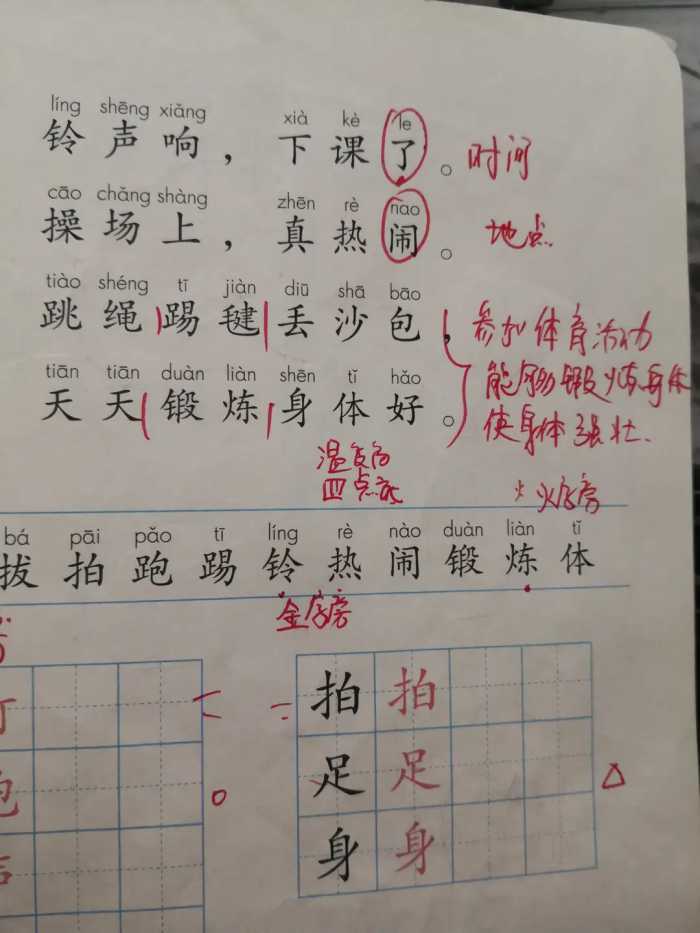 líng shēng xiǎng xià kè le
铃声响，下课了。时间
cāo chǎng shàng zhēn rè nao
操场上，真热闹。地点
tiào shéng tī jiàn diū shā bāo
跳绳踢毽丢沙包，参加体育活动
tiān tiān duàn liàn shēn tǐ hǎo
能够锻炼身体
天天锻炼身体好。使身体强壮.
四点底
火字旁
bá pāi pǎo tī líng rè nào duàn liàn tǐ
拔拍跑踢铃热闹锻炼体
金字旁
拍拍
足足
身身